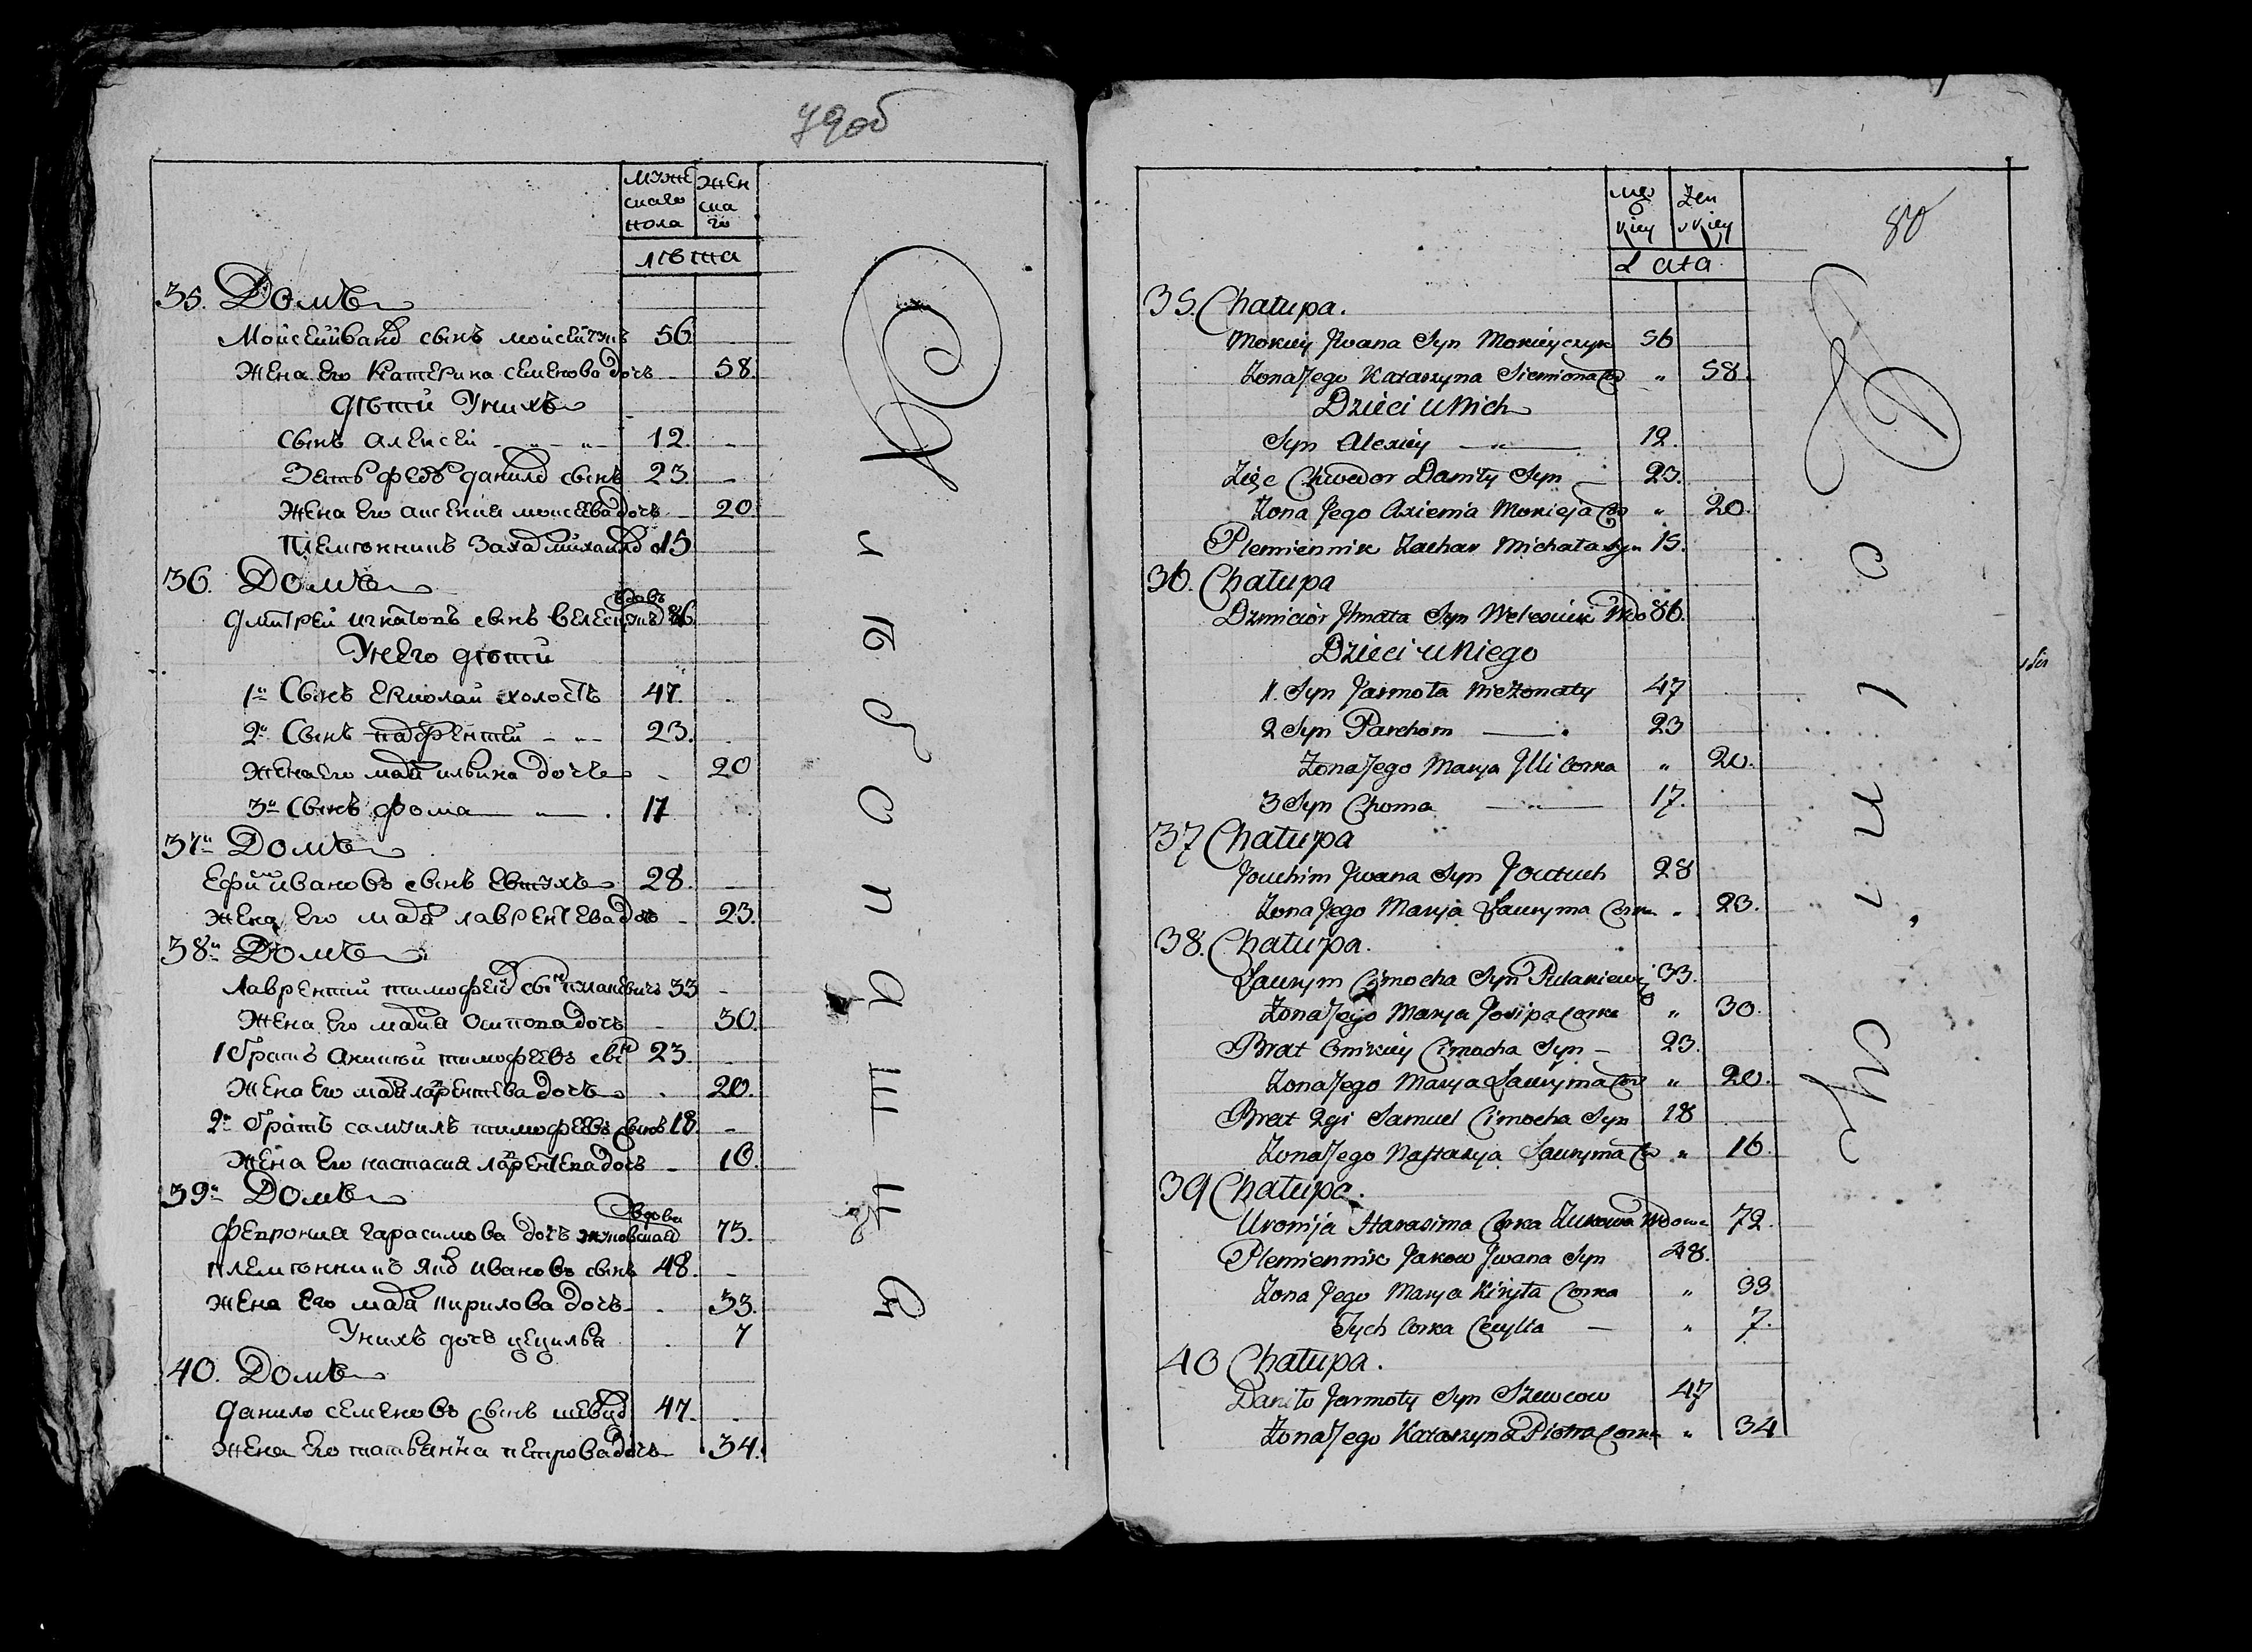 79об
мужескаго пола
женскаго
лѣта
35. Домъ
Моисей иванд сынъ моисейчукъ 56
Жена Его Катерина семенова дочь - 58.
дѣти Унихъ
сынъ алексей - „ - „ - 12. -
Зять федъ данилд сынъ 23 -
Жена Его аксения моисеева дочь - 20
Племѣнникъ Заха михаилд 15
36. Домъ
вдовъ
дмитрей игнатовъ сынъ 86
Унего дѣти
1й Сынъ ермолай холостъ 47. -
2й Сынъ парфентей - „ - 23.
жена его маря ильина дочь - 20
3й Сынъ фома — „ — . 17
37й Домъ
Ефимъ ивановъ сынъ Евтухъ 28. -
жена Его маря лаврентева дочь - 23.
38й Домъ
Лаврентий тимофеевъ сынъ 33 -
Жена Его мария Осипова дочь - 30.
1 братъ аникей тимофеевъ сынъ 23. -
Жена Его маря лаврентева дочь . 20.
2й братъ самуилъ тимофеевъ сынъ 18. -
Жена Его настасия лаврентева дочь - 16.
39й Домъ
вдова
Феврония гарасимова дочь жуковская 73.
племѣнникъ якѡ ивановъ сынъ 48. -
жена Его маря кирилова дочь - . 33.
Унихъ дочь цецилья . 7
40. Домъ
данило семеновъ сынъ 47. -
жена Его татьянна петрова дочь 34.
męskiey
Zenskiey
Lata
80
35. Chałupa.
Mokiey Jwana Syn Mokieyczyk 56
Zona Jego Katarzyna Siemiona Cor „ 58.
Dzieci u Nich
Syn Alexiey — „ — 12.
Zięc Chwedor Daniły Syn — 23.
Zona Jego Axienia Mokieja Cor „ 20.
Plemiennik Zachar Michała Syn 15.
36. Chałupa
Dzmicior Jhnata Syn Wdo 86.
Dzieci u Niego
1. Syn Jarmoła nieżonaty 47
2 Syn Parchom — „ 23
Zona Jego Marya Jlli Corka „ 20.
3 Syn Choma — „ — 17.
37 Chałupa
Jouchim Jwana Syn Jowtuch 28
Zona Jego Marya Ławryma Corka „ 23.
38. Chałupa.
Ławrym Cimocha Syn Pulakiewicz 33.
Zona Jego Marya Josipa Corka „ 30.
Brat Onikiey Cimocha Syn - 23.
Zona Jego Marya Ławryma Cor „ 20.
Brat 2gi Samuel Cimocha Syn 18
Zona Jego Nastazya Ławryma Co „ 16.
39 Chałupa.
Uronija Harasima Corka Zukowa Wdowa 72.
Plemiennik Jakow Jwana Syn 48.
Zona Jego Marya Kiryła Corka „ 33
Tych Corka Cecylia — „ 7.
40 Chałupa.
Daniło Jarmoły Syn Szewcow 47
Zona Jego Katarzyna Piotra Corka „ 34